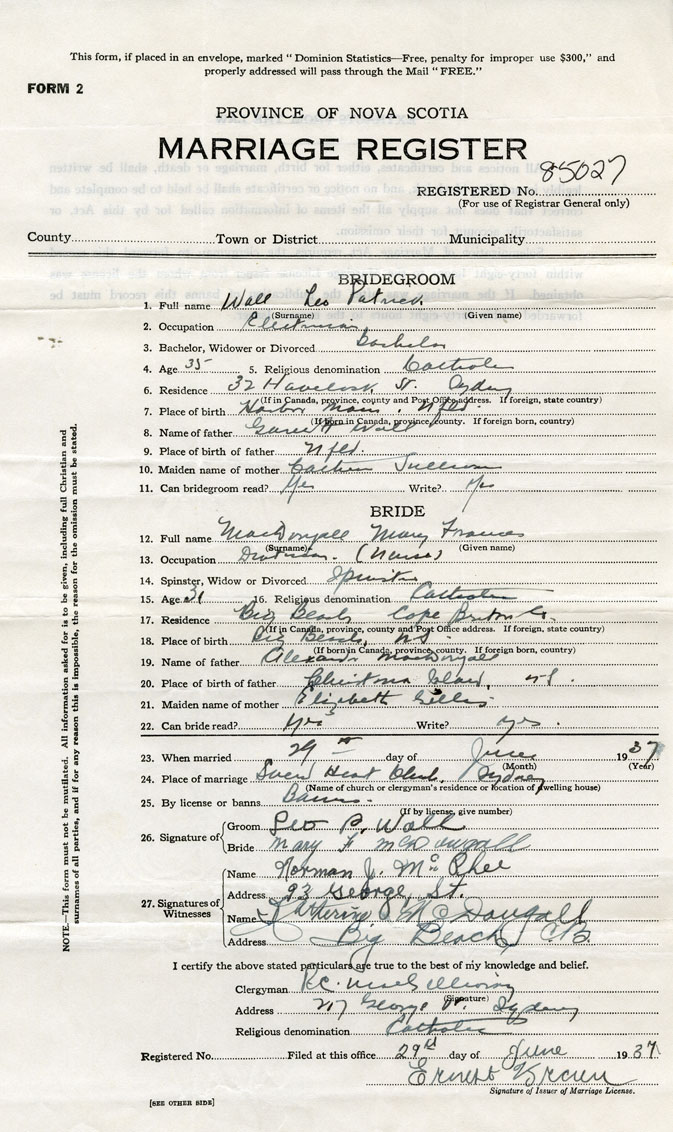 This form, if placed in an envelope, marked "Dominion Statistics—Free, penalty for improper use $300," and
properly addressed will pass through the Mail "FREE."
FORM 2
PROVINCE OF NOVA SCOTIA
MARRIAGE REGISTER
REGISTERED No. 85027
(For use of Registrar General only)
County Town or District Municipality
BRIDEGROOM
1. Full name Wall Leo Patrick
(Surname) (Given name)
2. Occupation Electrician
3. Bachelor, Widower or Divorced Bachelor
4. Age 35 5. Religious denomination Catholic
6. Residence 32 Havelock St. Sydney
(If in Canada, province, county and Post Office address. If foreign, state country)
7. Place of birth Harbor Main, Nfld.
(If born in Canada, province, county. If foreign born, country)
8. Name of father Garrett Wall
9. Place of birth of father Nfld.
10. Maiden name of mother Sullivan
11. Can bridegroom read? Yes Write? Yes
BRIDE
12. Full name MacDougall Mary Frances
(Surname) (Given name)
13. Occupation (Nurse)
14. Spinster, Widow or Divorced Spinster
15. Age 31 16. Religious denomination Catholic
17. Residence Big Beach Cape Breton Co.
(If in Canada, province, county and Post Office address. If foreign, state country)
18. Place of birth Big Beach, N.S.
(If born in Canada, province, county. If foreign born, country)
19. Name of father Alexander MacDougall
20. Place of birth of father Christmas Island, N.S.
21. Maiden name of mother Elizabeth Gillis
22. Can bride read? Yes Write? Yes.
23. When married 29th day of June 1937
(Month) (Year)
24. Place of marriage Sacred Heart Church, Sydney
(Name of church or clergyman's residence or location of dwelling house)
25. By license or banns Banns.
(If by license, give number)
26. Signature of
Groom Leo P. Wall
Bride Mary F McDougall
27. Signatures of Witnesses
Name Norman J. McPhee
Address 93 George St.
Name Katherine McDougall
Address Big Beach, C.B.
I certify the above stated particulars are true to the best of my knowledge and belief.
Clergyman R.C.
(Signature)
Address George St. Sydney
Religious denomination Catholic
Registered No. Filed at this office 29th day of June 1937
Ernest Brown
Signature of Issuer of Marriage License.
[SEE OTHER SIDE]
NOTE.—This form must not be mutilated. All information asked for is to be given, including full Christian and
surnames of all parties, and if for any reason this is impossible, the reason for the omission must be stated.